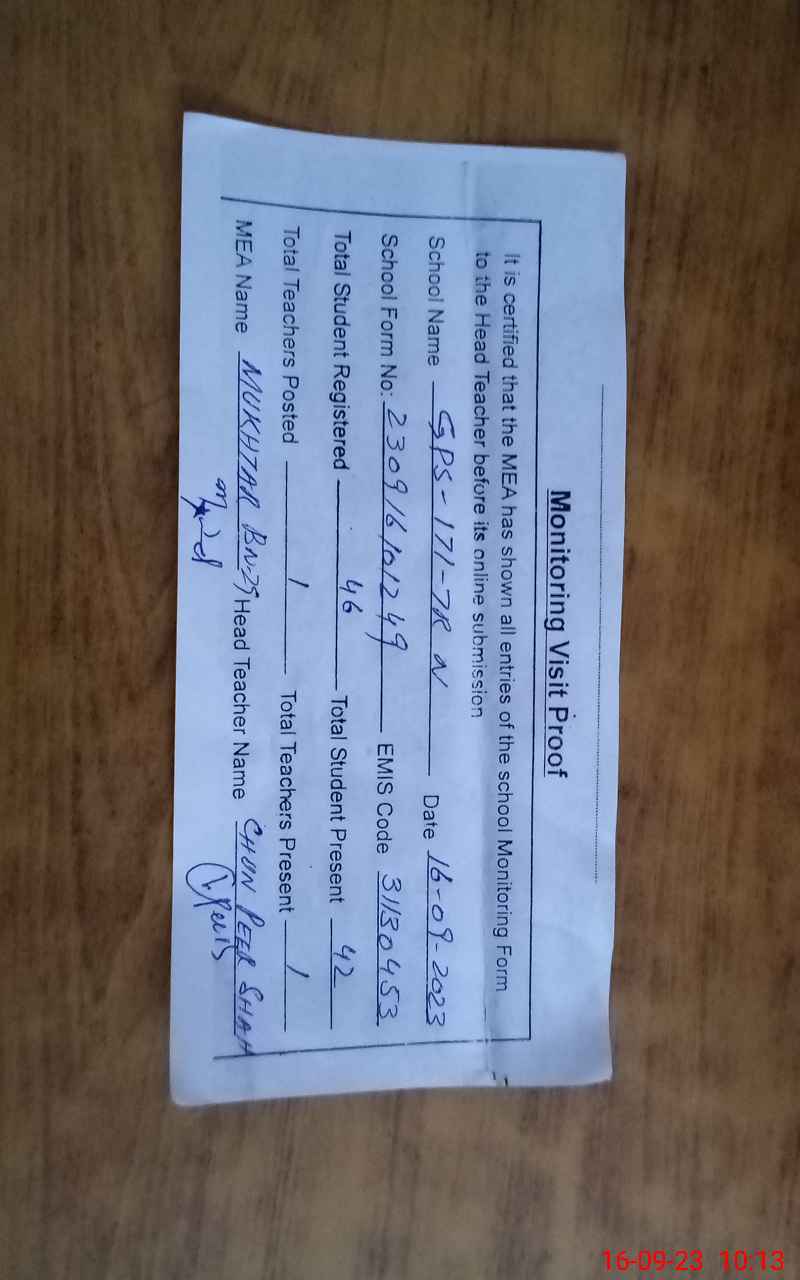 Monitoring Visit Proof
It is certified that the MEA has shown all entries of the school Monitoring Form
to the Head Teacher before its online submission
School Name GPS-171-7R N Date 16-09-2023
School Form No: 230916101249 EMIS Code 31130453
Total Student Registered 46 Total Student Present 42
Total Teachers Posted 1 Total Teachers Present 1
MEA Name MUKHTAR BN-25 Head Teacher Name CHUN PEER SHAH
16-09-23 10:13